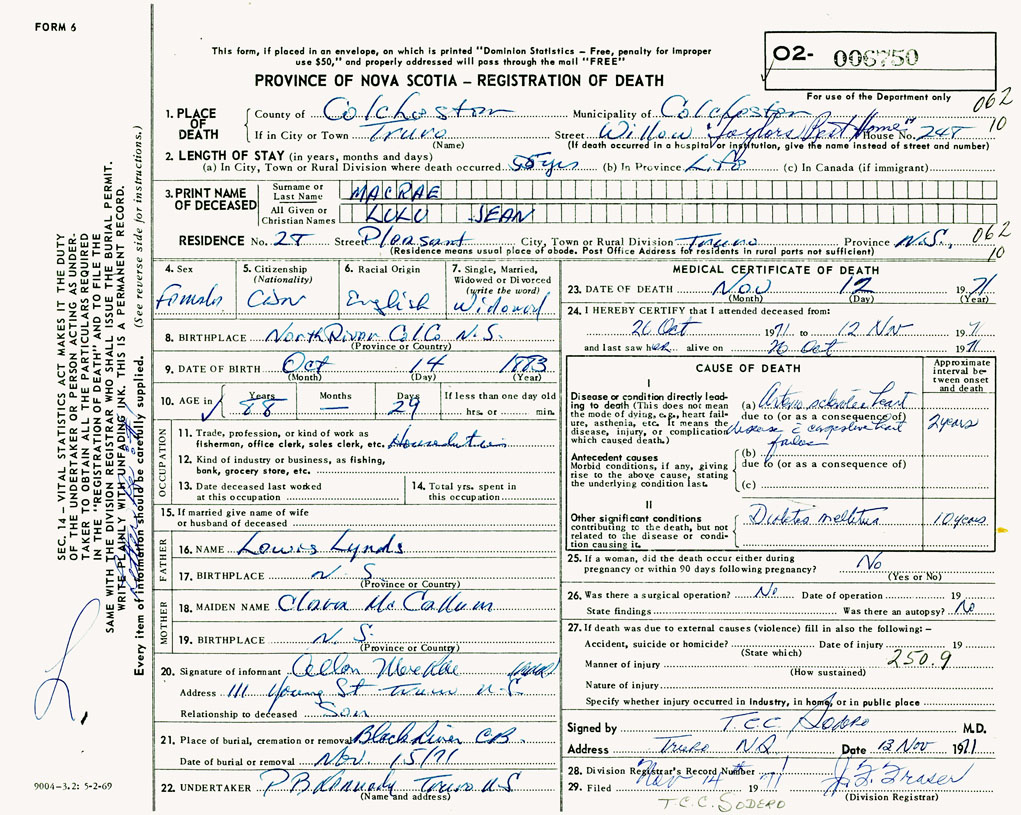 FORM 6
This form, if placed in an envelope, on which is printed "Dominion Statistics – Free, penalty for improper
use $50," and properly addressed will pass through the mail "FREE"
PROVINCE OF NOVA SCOTIA – REGISTRATION OF DEATH
O2- 006750
For use of the Department only
062
10
1. PLACE OF DEATH
County of Colchester Municipality of Colchester
If in City or Town Truro Street Willow "Taylors Rest Home" House No. 248
(Name) (If death occurred in a hospital or institution, give the name instead of street and number)
2. LENGTH OF STAY (in years, months and days)
(a) In City, Town or Rural Division where death occurred 55 yrs (b) In Province Life (c) In Canada (if immigrant)
3. PRINT NAME OF DECEASED
Surname or Last Name MACRAE
All Given or Christian Names LULU JEAN
RESIDENCE No. 28 Street Pleasant City, Town or Rural Division Truro Province N.S.,
062
10
(Residence means usual place of abode. Post Office Address for residents in rural parts not sufficient)
4. Sex Female
5. Citizenship (Nationality) Cdn
6. Racial Origin English
7. Single, Married, Widowed or Divorced (write the word) Widowed
8. BIRTHPLACE North River Col Co N.S.
(Province or Country)
9. DATE OF BIRTH Oct 14 1883
(Month) (Day) (Year)
10. AGE in Years 88 Months — Days 29 If less than one day old hrs. or min.
OCCUPATION
11. Trade, profession, or kind of work as fisherman, office clerk, sales clerk, etc. Houseduties
12. Kind of industry or business, as fishing, bank, grocery store, etc.
13. Date deceased last worked at this occupation
14. Total yrs. spent in this occupation
15. If married give name of wife or husband of deceased
FATHER
16. NAME Lewis Lynds
17. BIRTHPLACE N.S.
(Province or Country)
MOTHER
18. MAIDEN NAME Clara McCallum
19. BIRTHPLACE N.S.
(Province or Country)
20. Signature of informant Allan MacRae
Address 111 Young St Truro N.S.
Relationship to deceased Son
21. Place of burial, cremation or removal Black River CB.
Date of burial or removal Nov. 15/71
22. UNDERTAKER P B Kennedy Truro N.S.
(Name and address)
MEDICAL CERTIFICATE OF DEATH
23. DATE OF DEATH Nov 12 1971
(Month) (Day) (Year)
24. I HEREBY CERTIFY that I attended deceased from:
26 Oct 1971 to 12 Nov 1971
and last saw her alive on 26 Oct 1971
CAUSE OF DEATH
Approximate interval between onset and death
I
Disease or condition directly leading to death (This does not mean the mode of dying, e.g., heart failure, asthenia, etc. It means the disease, injury, or complication which caused death.)
(a) Arterio sclerotic heart
due to (or as a consequence of)
disease & congestive heart
failure
2 years
Antecedent causes
Morbid conditions, if any, giving rise to the above cause, stating the underlying condition last.
(b)
due to (or as a consequence of)
(c)
II
Other significant conditions contributing to the death, but not related to the disease or condition causing it.
Diabetes mellitus 10 years
25. If a woman, did the death occur either during pregnancy or within 90 days following pregnancy? No
(Yes or No)
26. Was there a surgical operation? No Date of operation 19
State findings Was there an autopsy? No
27. If death was due to external causes (violence) fill in also the following: –
Accident, suicide or homicide? Date of injury 19
(State which) 250.9
Manner of injury
(How sustained)
Nature of injury
Specify whether injury occurred in Industry, in home, or in public place
Signed by T.C.C. Sodero M.D.
Address Truro NS Date 13 Nov 1971
28. Division Registrar's Record Number
29. Filed Nov 14 1971 J. F. Fraser
(Division Registrar)
T.C.C. SODERO
SEC. 14 – VITAL STATISTICS ACT MAKES IT THE DUTY
OF THE UNDERTAKER OR PERSON ACTING AS UNDER-
TAKER TO OBTAIN ALL THE PARTICULARS REQUIRED
IN THE "REGISTRATION OF DEATH" AND TO FILE THE
SAME WITH THE DIVISION REGISTRAR WHO SHALL ISSUE THE BURIAL PERMIT.
WRITE PLAINLY WITH UNFADING INK. THIS IS A PERMANENT RECORD.
Every item of information should be carefully supplied. (See reverse side for instructions.)
9004-3.2: 5-2-69